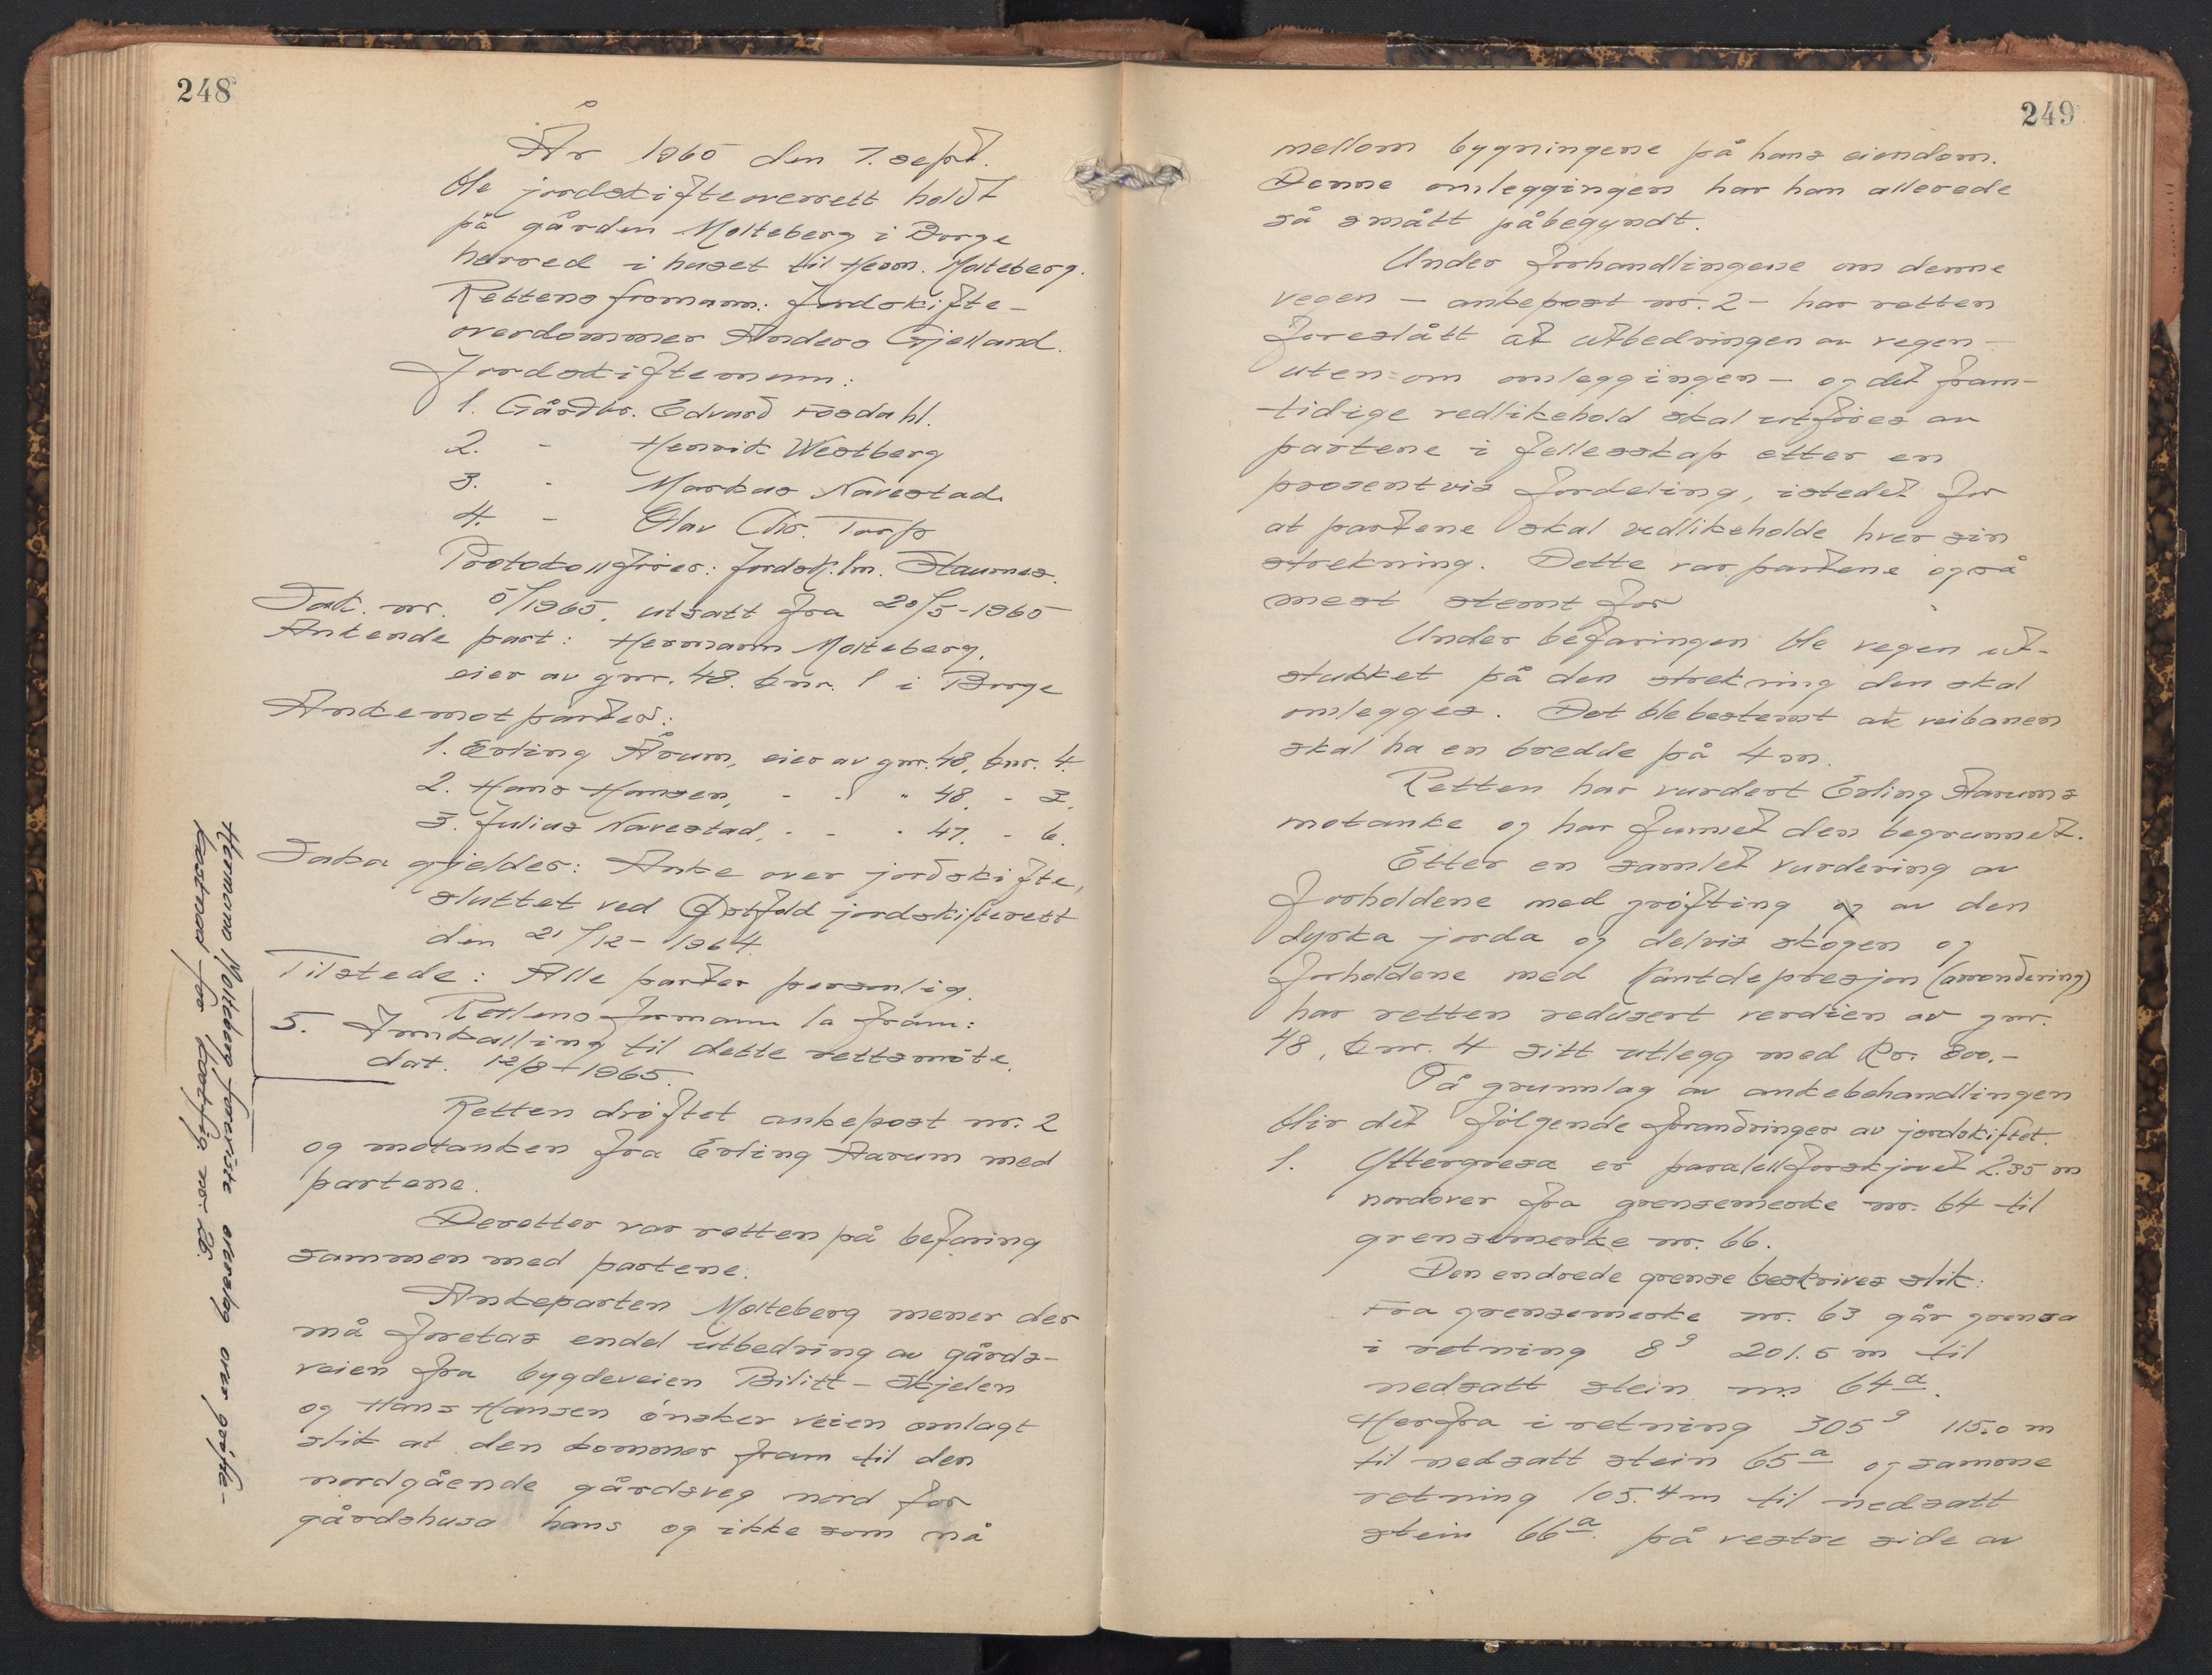 248
År 1965 den 7. sept.
ble jordskifteoverrett holdt
på gården Molteberg i Borge
herred i huset til Herm. Molteberg.
Rettens formann: Jordskifte-
overdommer Anders Gjelland.
Jordskiftemenn:
1. Gårdbr. Edvard Fosdahl.
2. - Henrik Westberg
3. - Markus Navestad.
4. - Olav Chr. Torp
Protokollfører: Jordsk.lm. Staurnes.
Sak. nr. 5/1965, utsatt fra 20/5-1965
Ankende part: Hermann Molteberg,
eier av gnr. 48. bnr. 1 i Borge
Ankemotparter:
1. Erling Årum, eier av gnr. 48, bnr. 4.
2. Hans Hansen, - - " 48. - 3.
3. Julius Navestad, - - " 47. - 6.
Saka gjelder: Anke over jordskifte,
sluttet ved Østfold jordskifterett
den 21/12- 1964.
Tilstede: Alle parter personlig.
Rettens formann la fram:
5. Innkalling til dette rettsmöte,
dat. 12/8 - 1965.
Retten drøftet ankepost nr. 2
og motanken fra Erling Aarum med
partene.
Deretter var retten på befaring
sammen med partene.
Ankeparten Molteberg mener der
må foretas endel utbedring av gårds-
veien fra bygdeveien Bilitt - Skjelen
og Hans Hansen ønsker veien omlagt
slik at den kommer fram til den
nordgående gårdsveg nord for
gårdshusa hans og ikke som nå
Hermann Molteberg foreviste overslag over grøfte-
kostnad for kartfig nr. 26.
249
mellom bygningene på hans eiendom.
Denne omleggingen har han allerede
så smått påbegyndt.
Under forhandlingene om denne
vegen - ankepost nr. 2 - har retten
foreslått at utbedringen av vegen -
uten=om omleggingen - og det fram-
tidige vedlikehold skal utföres av
partene i fellesskap etter en
prosentvis fordeling, istedet for
at partene skal vedlikeholde hver sin
strekning. Dette var partene også
mest stemt for
Under befaringen ble vegen ut-
stukket på den strekning den skal
omlegges. Det ble bestemt at veibanen
skal ha en bredde på 4 m.
Retten har vurdert Erling Aarums
motanke og har funnet den begrunnet.
Etter en samlet vurdering av
forholdene med grøfting og av den
dyrka jorda og delvis skogen og
forholdene med kantdepresjon (arrondering)
har retten redusert verdien av gnr.
48, bnr. 4 sitt utlegg med Kr. 800.-
På grunnlag av ankebehandlingen
blir det fölgende forandringer av jordskiftet.
1. Yttergrensa er paralellforskjovet 2.35 m
nordover fra grensemerke nr. 64 til
grensemerke nr. 66.
Den endrede grense beskrives slik:
Fra grensemerke nr. 63 går grensa
i retning 8g 201.5 m til
nedsatt stein nr. 64a.
Herfra i retning 305g 115.0 m
til nedsatt stein 65a og samme
retning 105.4 m til nedsatt
stein 66a. på vestre side av